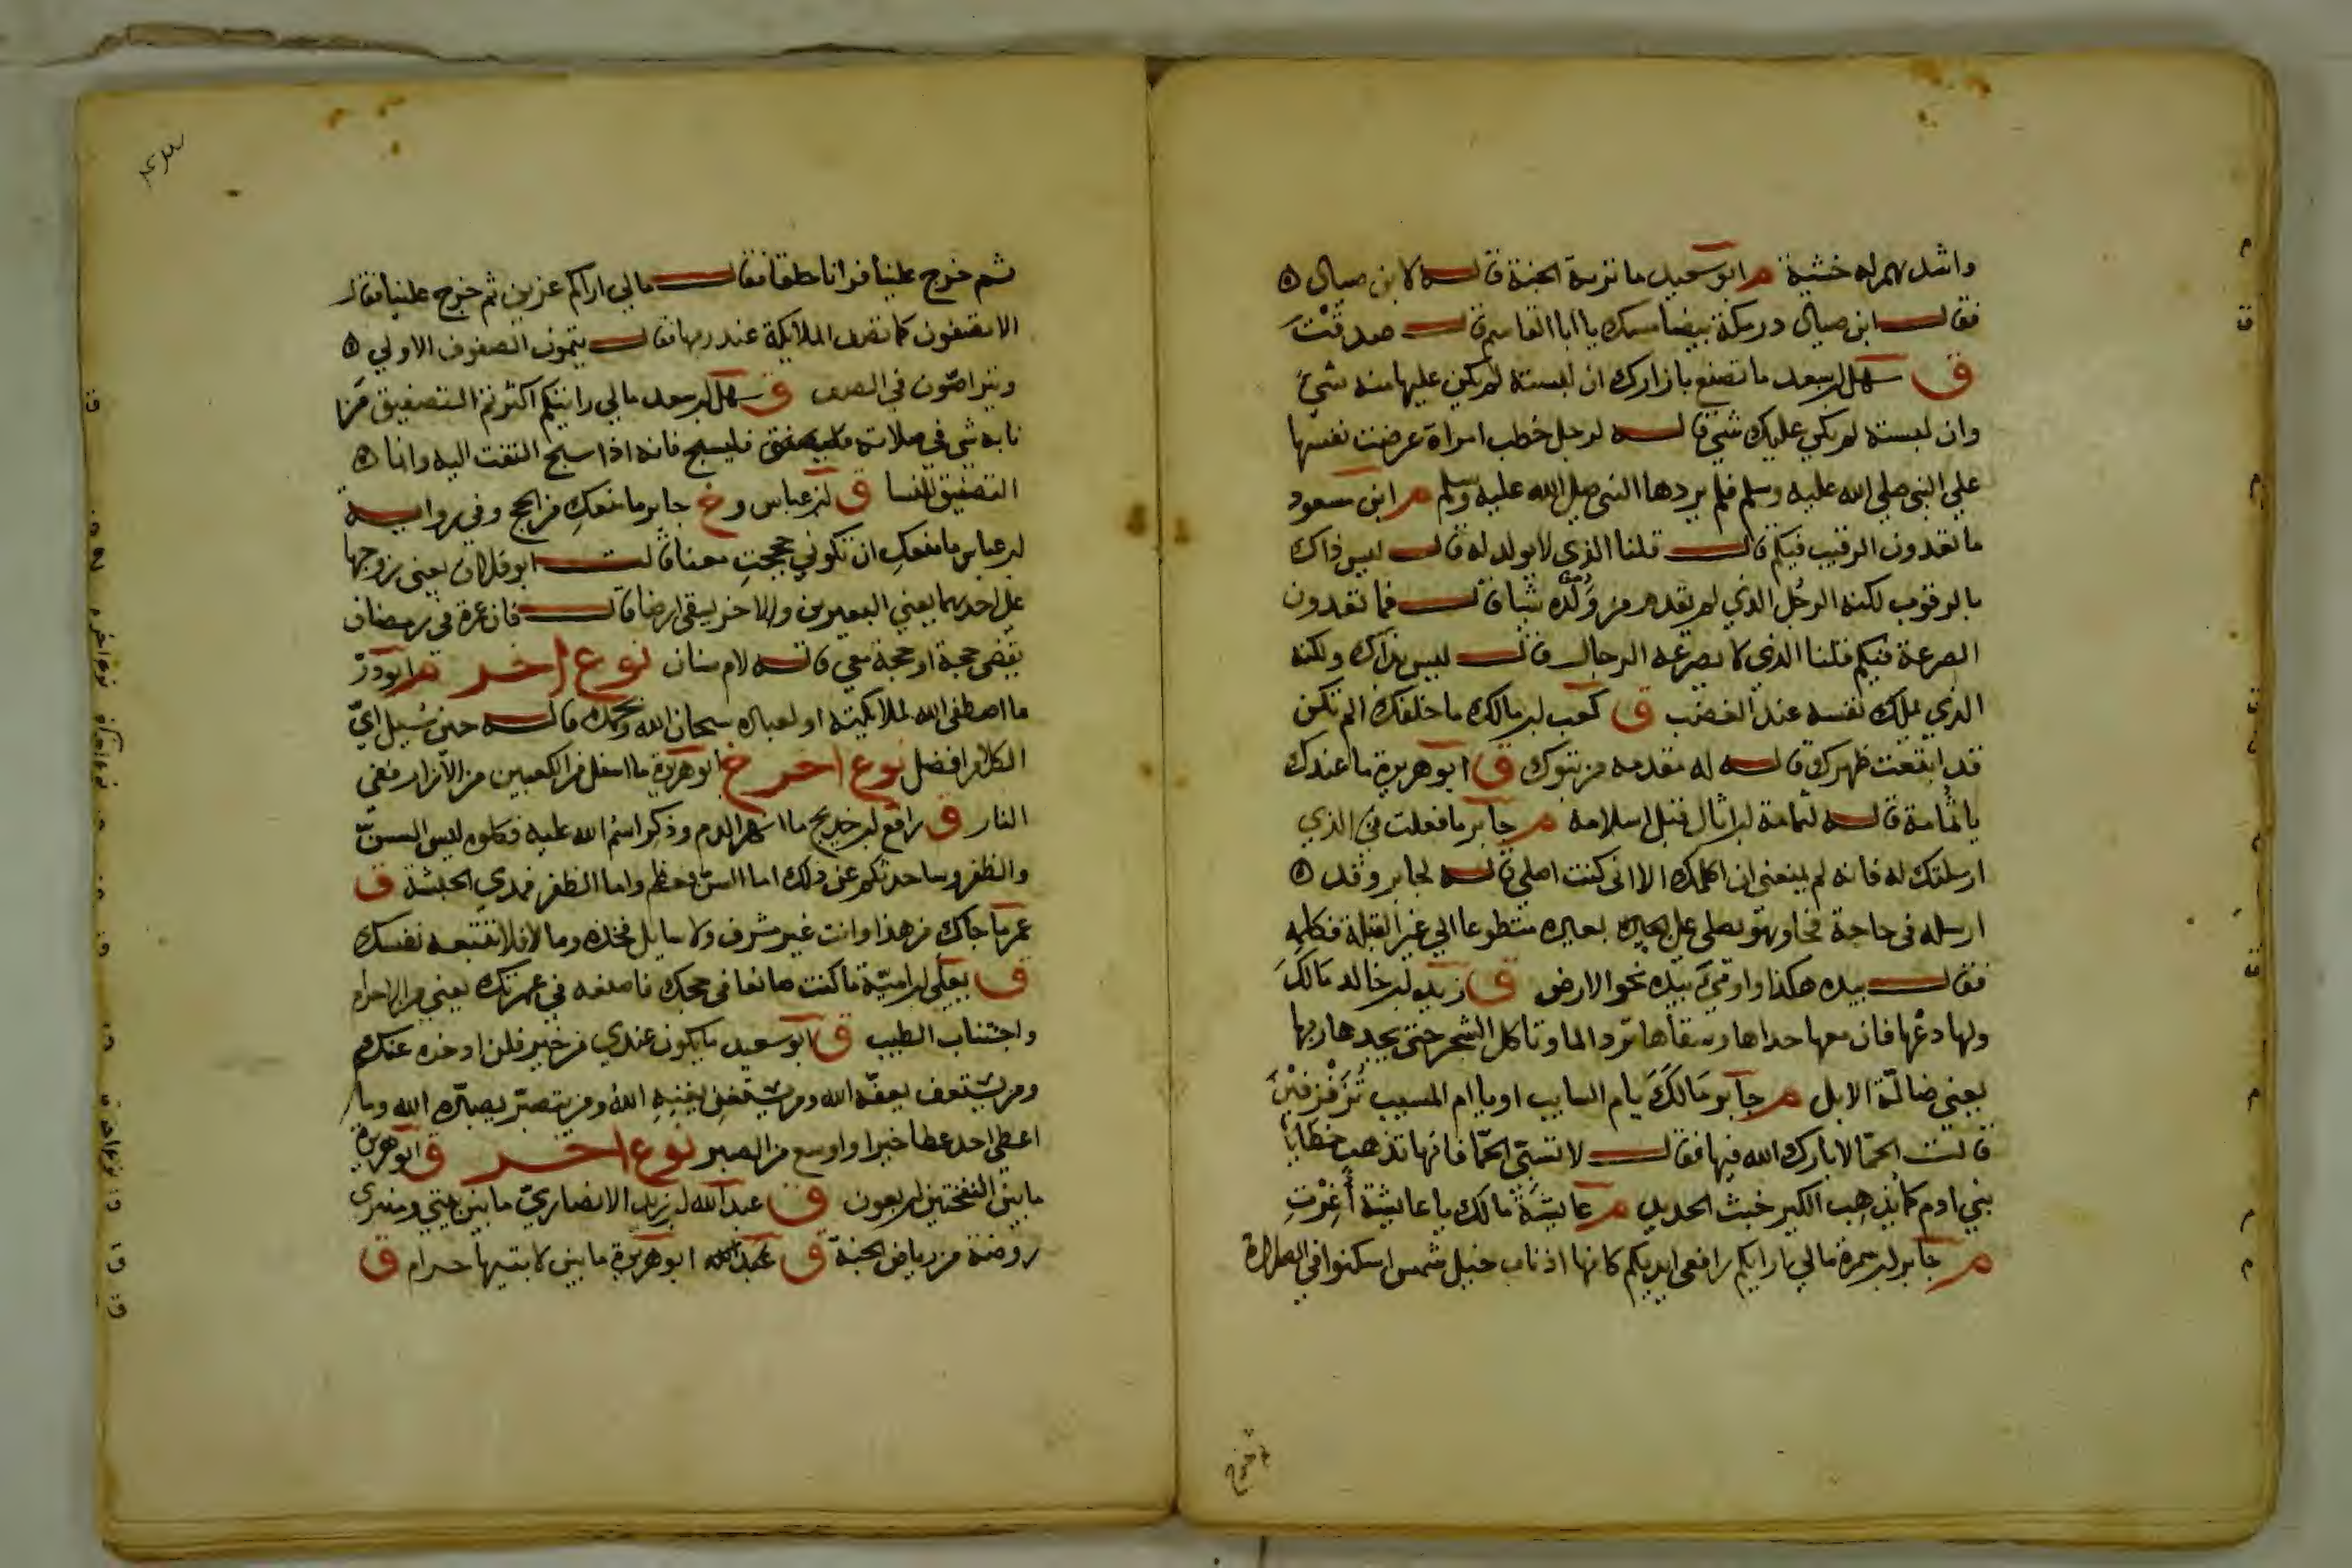 واشدهم له خشية م ابو سعيد ما تربة الجنة قاله لابن صياد
فقال ابن صياد درمكة بيضا مسك يا ابا القاسم قال صدقت
ق سهل بن سعد ما تصنع بازارك ان لبسته لم يكن عليها منه شيءٌ
وان لبسته لم يكن عليك شي قاله لرجل خطب امراة عرضت نفسها
علي النبي صلي الله عليه وسلم فلم يردها النبي صلي الله عليه وسلم م ابن مسعود
ما تعدون الرقيب فيكم قال قلنا الذي لا يولد له قال ليس ذاك
بالرقوب لكنه الرجُل الذي لم يقدم من ولده شيا قال فما تعدون
الصرعة فيكم قلنا الذي لا يصرعه الرجال قال ليس بذاك ولكنه
الذي يملك نفسه عند الغضب ق كعب بن مالك ما خلفك الم تكن
قد ابتعت ظهرك قاله له مقدمه من تبوك ق ابو هريرة ما عندك
يا ثمامة قاله لثمامة بن اثال قبل اسلامه م جابر ما فعلت في الذي
ارسلتك له فانه لم يمنعني ان اكلمك الا اني كنت اصلي قاله لجابر وقد
ارسله في حاجة فجا وهو يصلي علي بعيره متطوعا الي غير القبلة فكلمه
فقال بيده هكذا واوميَ بيده نحو الارض ق زيد بن خالد مَالكَ
ولها دعْها فان معها حذاها وسقاها ترد الما وتاكل الشجر حتي يجدها ربها
يعني ضالّة الابل م جابر مَالَكَ يام السايب او يا ام المسيب تُزَفْزفيْنَ
قالت الحمّا لا بارك الله فيها فقال لا تسبّي الحمّا فانها تذهب خطايا
بني ادم كما يذهب الكير خبث الحديد م عايشة مالك يا عايشة أغرْتِ
م جابر بن سمرة مالي اراكم رافعي ايديكم كانها اذناب خيل شمس اسكنوا في الصلاة
ثم خرج
ثم خرج علينا فرانا حلقا فقال مالي اراكم عزين ثم خرج علينا فقال
الا تصفون كما تصف الملايكة عند ربها قال يتمون الصفوف الاولي
ويتراصّون في الصف ق سهل بن سعد مالي رايتكم اكثرتم التصفيق مَن
نابه شي في صلاته فليسبح فانه اذا سبح التفت اليه وانما
التصفيق للنسا ق ابن عباس و خ جابر ما منعكِ من الحج وفي رواية
ابن عباس ما منعكِ ان تكوني حججتِ معنا قالت ابو فلان يعني زوجها
علي احدهما يعني البعيرين والاخر يسقي ارضا قال فان عمرة في رمضان
تقضي حجة او حجة معي قاله لام سنان نوع اخر م ابو ذرّ
ما اصطفي الله لملايكته او لعباده سبحان الله وبحمده قاله حين سُيل ايّ
الكلام افضل نوع اخر خ ابو هريرة ما اسفل من الكعبين من الازار ففي
النار ق رافع بن خديج ما انهر الدم وذكر اسمُ الله عليه فكلوه ليس السنّ
والظفر وساحدثكم عن ذلك اما السنّ فعظم واما الظفر فمدي الحبشة ق
عمر ما جاك من هذا وانت غير مشرف ولا سايل فخذه وما لا فلا تتبعه نفسك
ق يعلي بن اميّة ما كنت صانعا في حجك فاصنعه في عمرتك يعني من الاحرام
واجتناب الطيب ق ابو سعيد ما يكون عندي من خير فلن ادخره عنكم
ومن يستعف يعفّه الله ومن يستغن يغنيه الله ومن يتصبّر يصبّره الله وما
اعطي احد عطا خيرا واوسع من الصبر نوع اخر ق ابو هريرة
ما بين النفختين اربعون ق عبد الله بن زيد الانصاريّ ما بين بيتي ومنبري
روضة من رياض الجنة ق ابو هريرة ما بين لابتيها حرام ق